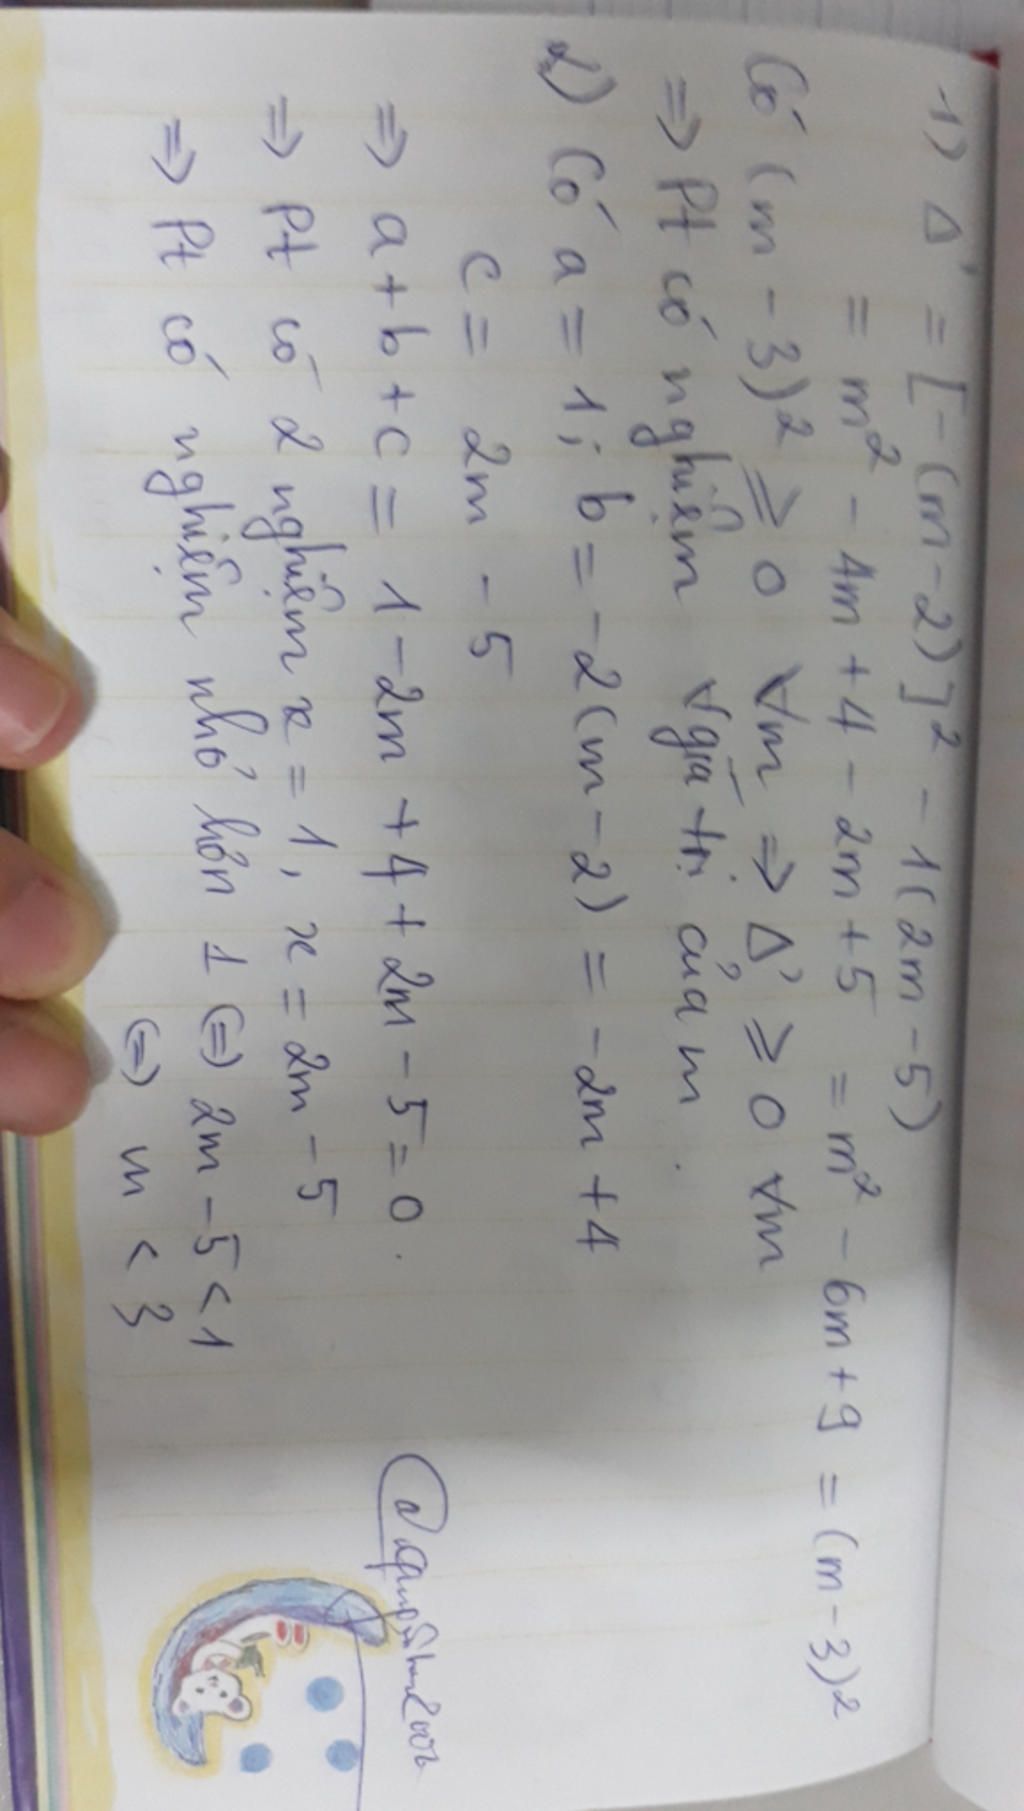 1) Δ' = [-(m-2)]² - 1(2m-5)
= m² - 4m + 4 - 2m + 5 = m² - 6m + 9 = (m-3)²
Có (m-3)² ⩾ 0 ∀m ⇒ Δ' ⩾ 0 ∀m
⇒ Pt có nghiệm ∀ giá trị của m.
2) Có a = 1; b = -2(m-2) = -2m + 4
c = 2m - 5
⇒ a + b + c = 1 - 2m + 4 + 2m - 5 = 0.
⇒ Pt có 2 nghiệm x = 1, x = 2m - 5
⇒ Pt có nghiệm nhỏ hơn 1 (=) 2m - 5 < 1
(=) m < 3